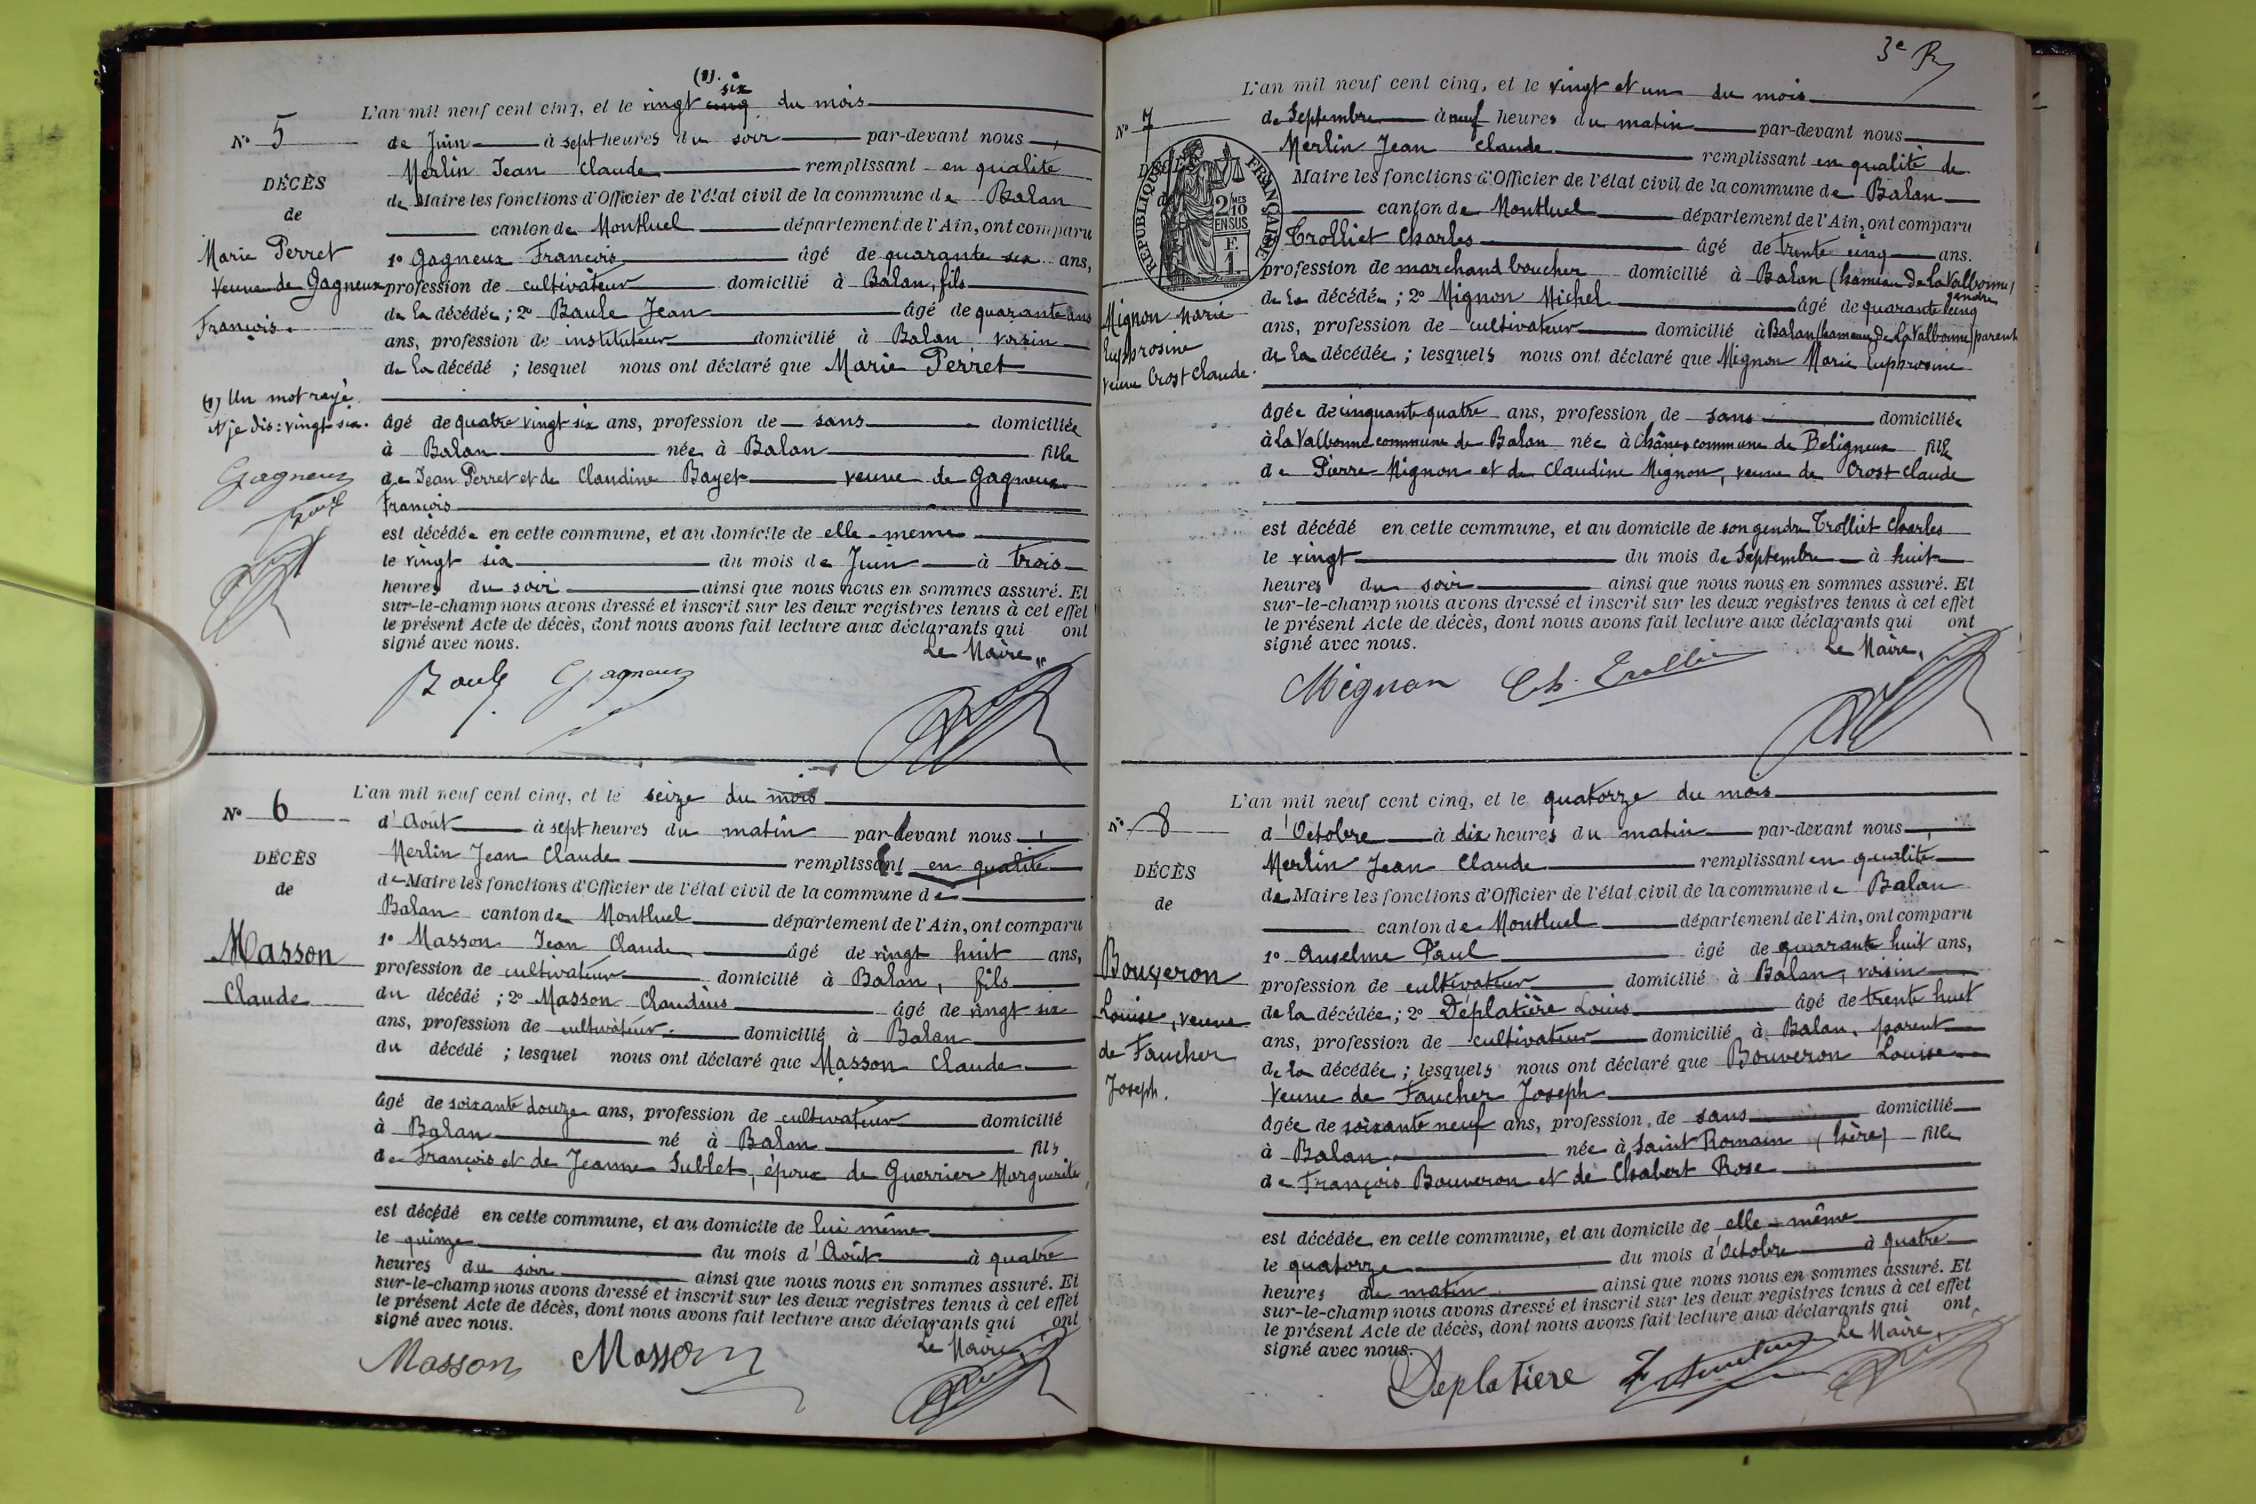 (1). six
L'an mil neuf cent cinq, et le vingt cinq du mois
N° 5
de Juin à sept heures du soir par-devant nous,
Merlin Jean Claude remplissant en qualité
DÉCÈS
de Maire les fonctions d'Officier de l'état civil de la commune de Balan
de
canton de Montluel département de l'Ain, ont comparu
Marie Perret
1° Gagneux François âgé de quarante six ans,
veuve de Gagneux
profession de cultivateur domicilié à Balan, fils
de la décédée; 2° Baule Jean âgé de quarante ans
François.
ans, profession de instituteur domicilié à Balan voisin
de la décédé ; lesquel nous ont déclaré que Marie Perret
(1) Un mot rayé
et je dis: vingt-six.
âgé de quatre vingt six ans, profession de sans domiciliée
à Balan née à Balan fille
de Jean Perret et de Claudine Bayet veuve de Gagneux
Gagneux
François
Baule
est décédée en cette commune, et au domicile de elle-même
le vingt six du mois de Juin à trois
heures du soir ainsi que nous nous en sommes assuré. Et
sur-le-champ nous avons dressé et inscrit sur les deux registres tenus à cet effet
le présent Acte de décès, dont nous avons fait lecture aux déclarants qui ont
signé avec nous.
Le Maire,
Baule Gagneux
L'an mil neuf cent cinq, et le seize du mois
N° 6
d'Août à sept heures du matin par-devant nous,
Merlin Jean Claude remplissant en qualité
DÉCÈS
de Maire les fonctions d'Officier de l'état civil de la commune de
de
Balan canton de Montluel département de l'Ain, ont comparu
Masson
1° Masson Jean Claude âgé de vingt huit ans,
profession de cultivateur domicilié à Balan, fils
Claude
du décédé ; 2° Masson Claudius âgé de vingt six
ans, profession de cultivateur. domicilié à Balan
du décédé ; lesquel nous ont déclaré que Masson Claude
âgé de soixante douze ans, profession de cultivateur domicilié
à Balan né à Balan fils
de François et de Jeanne Sublet, époux de Guerrier Marguerite,
est décédé en cette commune, et au domicile de lui même
le quinze du mois d'Août à quatre
heures du soir ainsi que nous nous en sommes assuré. Et
sur-le-champ nous avons dressé et inscrit sur les deux registres tenus à cet effet
le présent Acte de décès, dont nous avons fait lecture aux déclarants qui ont
signé avec nous.
Le Maire,
Masson Masson
3e R
L'an mil neuf cent cinq, et le vingt et un du mois
N° 7
de Septembre à neuf heures du matin par-devant nous
Merlin Jean Claude remplissant en qualité de
DÉCÈS
Maire les fonctions d'Officier de l'état civil de la commune de Balan
de
canton de Montluel département de l'Ain, ont comparu
RÉPUBLIQUE FRANÇAISE
2 MES 10 EN SUS
F. 1.
Trolliet Charles âgé de trente cinq ans.
profession de marchand boucher domicilié à Balan (hameau de La Valbonne)
gendre
de la décédée ; 2° Mignon Michel âgé de quarante cinq
Mignon Marie
ans, profession de cultivateur domicilié à Balan (hameau de La Valbonne) parent
Euphrosine
de la décédée ; lesquels nous ont déclaré que Mignon Marie Euphrosine
veuve Crost Claude.
âgée de cinquante quatre ans, profession de sans domiciliée
à La Valbonne commune de Balan née à Chânes commune de Beligneux fille
de Pierre Mignon et de Claudine Mignon, veuve de Crost Claude
est décédé en cette commune, et au domicile de son gendre Trolliet Charles
le vingt du mois de Septembre à huit
heures du soir ainsi que nous nous en sommes assuré. Et
sur-le-champ nous avons dressé et inscrit sur les deux registres tenus à cet effet
le présent Acte de décès, dont nous avons fait lecture aux déclarants qui ont
signé avec nous.
Le Maire,
Mignon Ch. Trolliet
L'an mil neuf cent cinq, et le quatorze du mois
N° 8
d'Octobre à dix heures du matin par-devant nous,
Merlin Jean Claude remplissant en qualité
DÉCÈS
de Maire les fonctions d'Officier de l'état civil de la commune de Balan
de
canton de Montluel département de l'Ain, ont comparu
1° Anselme Paul âgé de quarante huit ans,
Bouveron
profession de cultivateur domicilié à Balan, voisin
Louise, veuve
de la décédée; 2° Déplatière Louis âgé de trente huit
ans, profession de cultivateur domicilié à Balan. parent
de Faucher
de la décédée ; lesquels nous ont déclaré que Bouveron Louise
Joseph.
veuve de Faucher Joseph
âgée de soixante neuf ans, profession de sans domicilié
à Balan née à Saint Romain (Isère) fille
de François Bouveron et de Chabert Rose
est décédée en cette commune, et au domicile de elle-même
le quatorze du mois d'Octobre à quatre
heures du matin ainsi que nous nous en sommes assuré. Et
sur-le-champ nous avons dressé et inscrit sur les deux registres tenus à cet effet
le présent Acte de décès, dont nous avons fait lecture aux déclarants qui ont
signé avec nous.
Le Maire,
Deplatiere